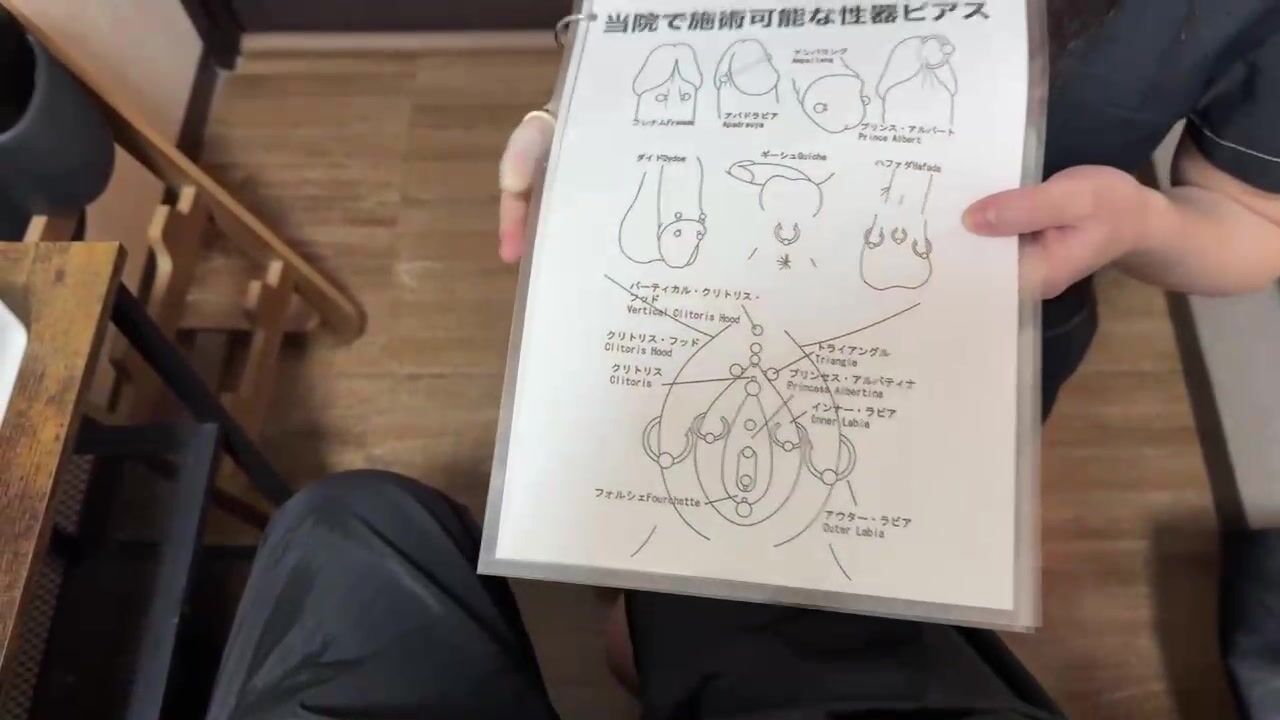 当院で施術可能な性器ピアス
フレナムFrenum
アパドラビア
Apadravya
アンパリング
Ampallang
プリンス・アルバート
Prince Albert
ダイドDydoe
ギーシュGuiche
ハファダHafada
バーティカル・クリトリス・
フッド
Vertical Clitoris Hood
クリトリス・フッド
Clitoris Hood
クリトリス
Clitoris
トライアングル
Triangle
プリンセス・アルバティナ
Princess Albertina
インナー・ラビア
Inner Labia
フォルシェFourchette
アウター・ラビア
Outer Labia